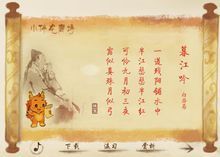 暮江吟
白居易
一道残阳铺水中
半江瑟瑟半江红
可怜九月初三夜
露似真珠月似弓
下载
赏析